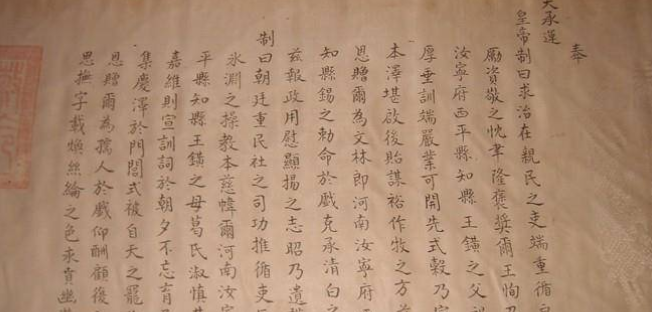 奉
天承運
皇帝制曰求治在親民之吏端重循
勵資敬之忱聿隆褒獎爾王恂乃
汝寧府西平縣知縣王鐄之父
厚垂訓端嚴業可開先式穀乃
本澤堪啟後貽謀裕作牧之方
恩贈爾為文林郎河南汝寧府
知縣錫之勅命於戲克承清白之
茲報政用慰顯揚之志昭乃遺
制曰朝廷重民社之司功推循吏
氷淵之操教本慈幃爾河南汝
平縣知縣王鐄之母葛氏淑慎
嘉維則宣訓詞於朝夕不忘育
集慶澤於門閭式被自天之寵
恩贈爾為孺人於戲仰酬顧後
思撫字載煥絲綸之色永賁幽